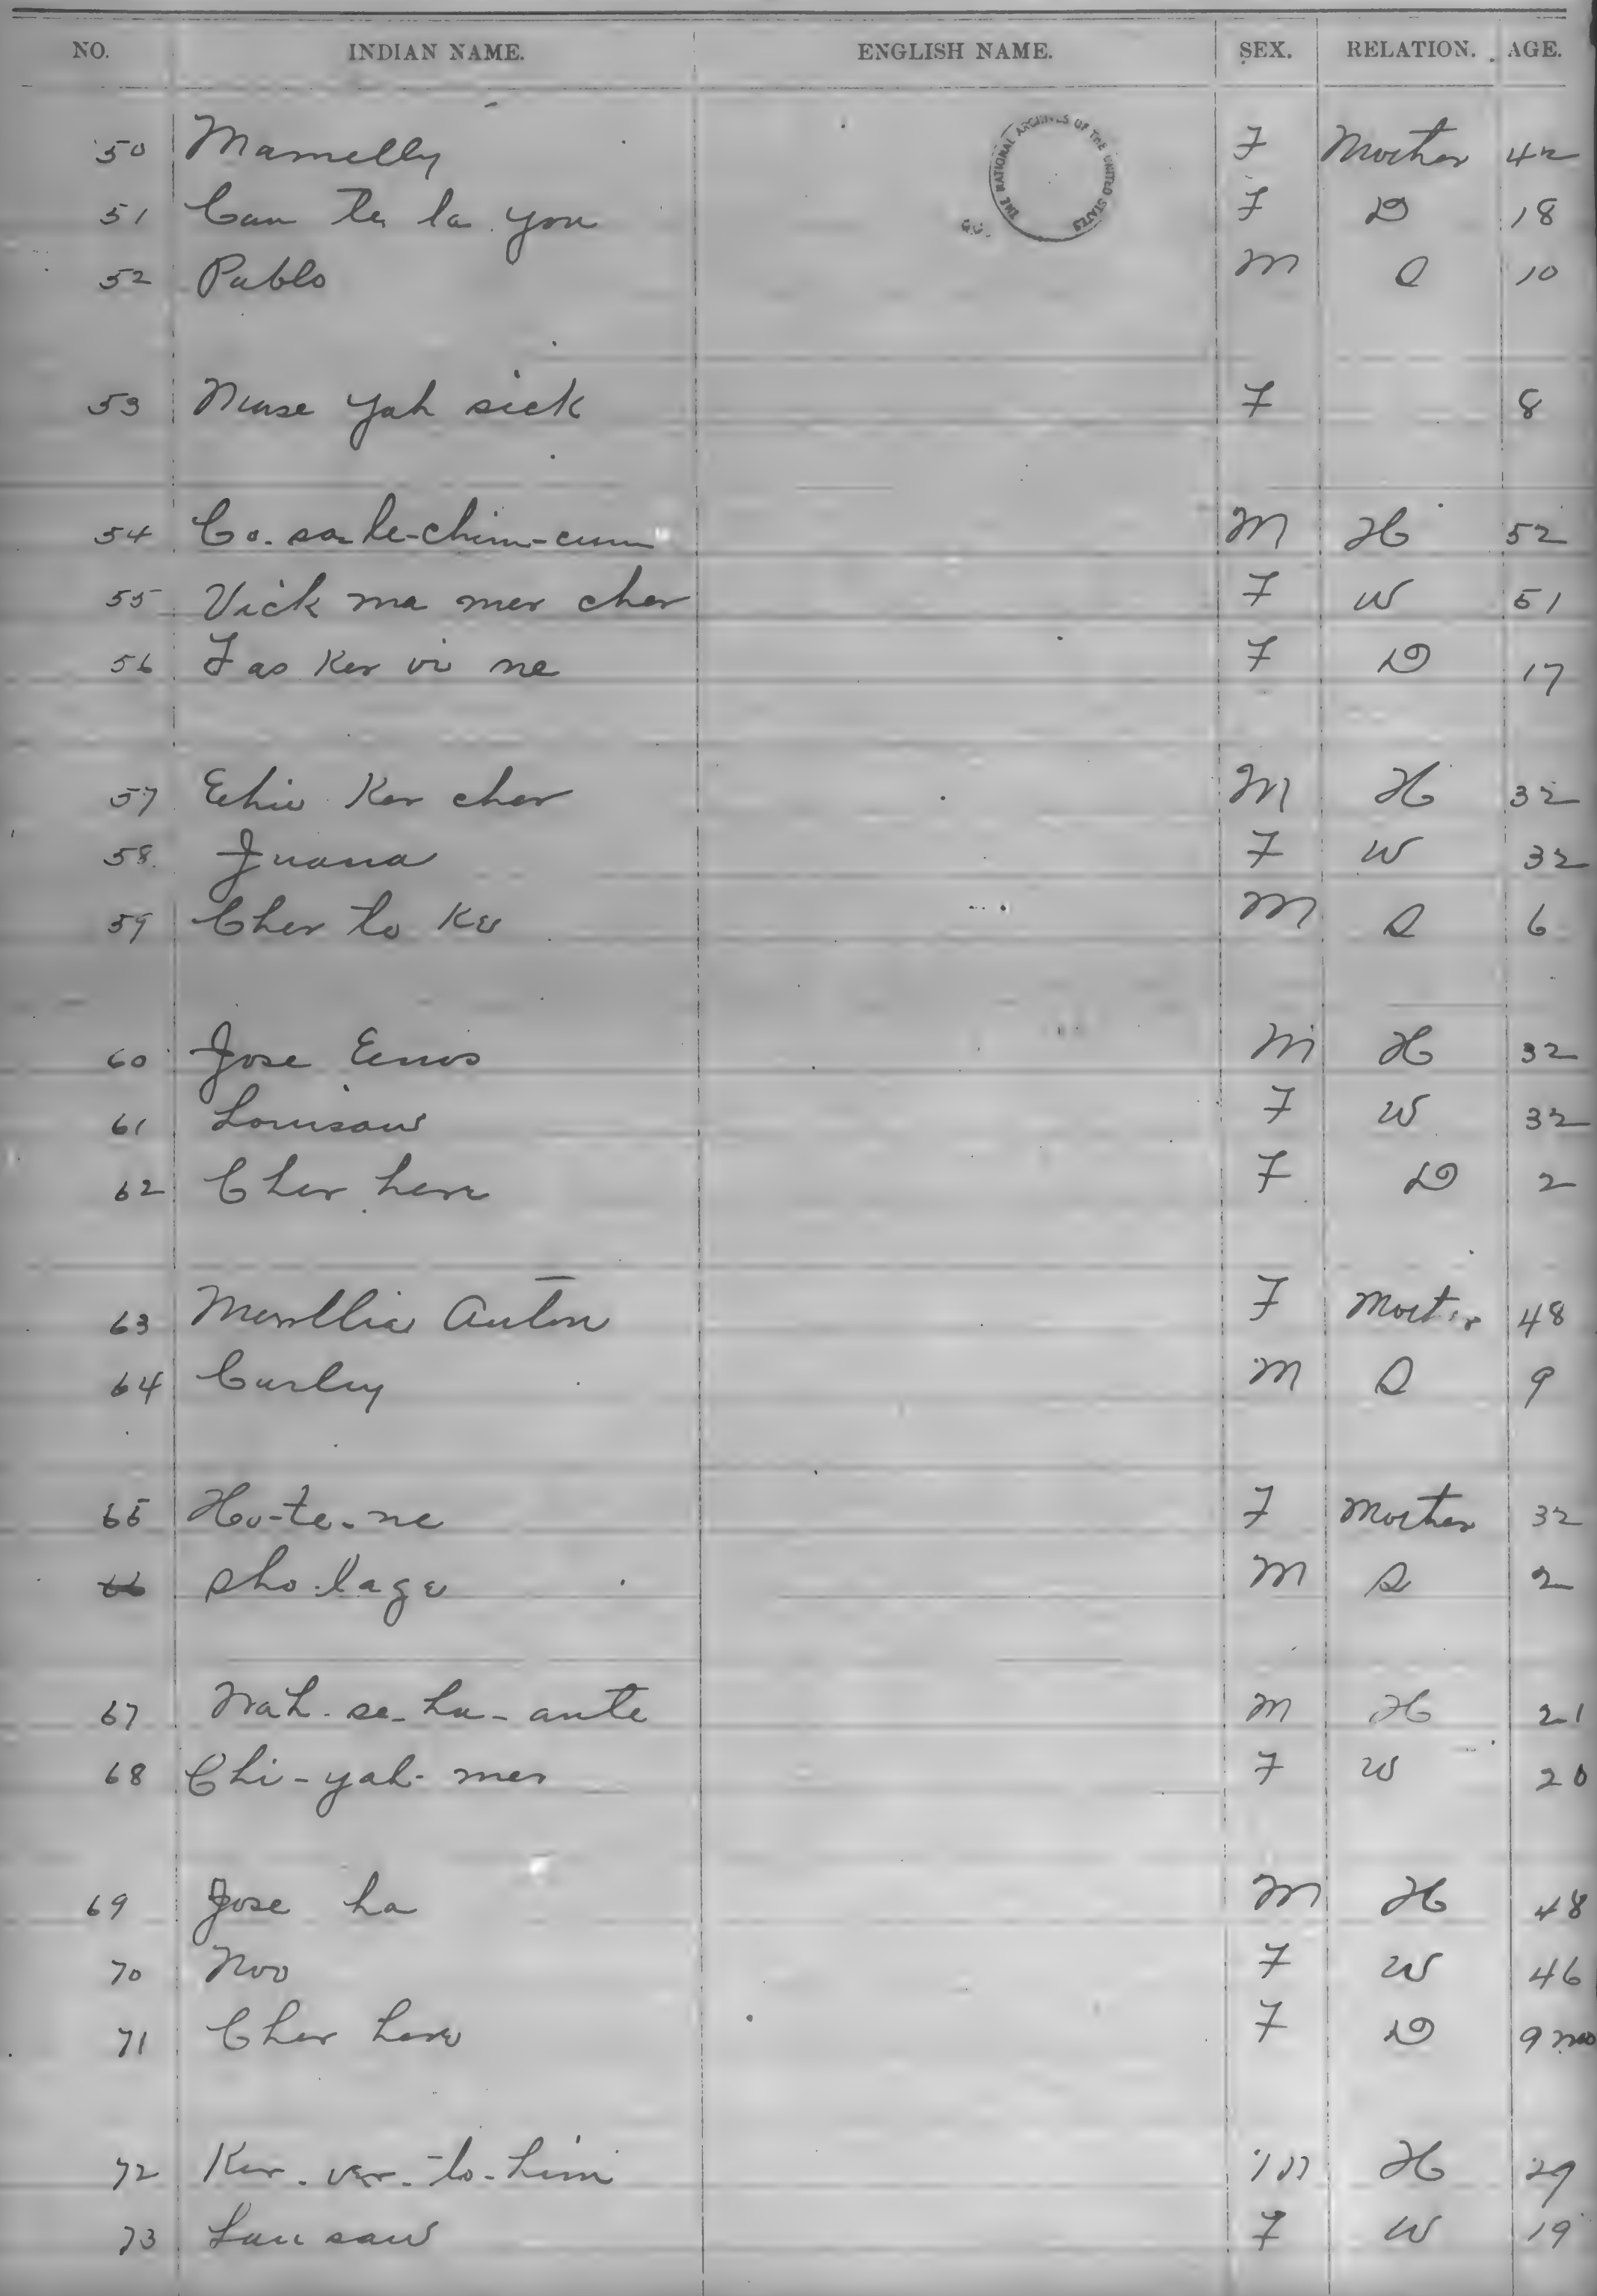 NO. INDIAN NAME. ENGLISH NAME. SEX. RELATION. AGE.
THE NATIONAL ARCHIVES OF THE UNITED STATES
50 Mamelly F Mother 42
51 Can te la you F D 18
52 Pablo M S 10
53 Muse yah sick F 8
54 Co-sa-le-chim-cum M H 52
55 Vick ma mer cher F W 51
56 Tas Ker vi ne F D 17
57 Echiv Ker cher M H 32
58 Juana F W 32
59 Cher to Ke M S 6
60 Jose Enos M H 32
61 Louisau F W 32
62 Cher here F D 2
63 Merellia Anton F Mother 48
64 Curley M S 9
65 Ho-te-ne F Mother 32
66 Sho-lage M S 2
67 Nah-se-hu-ante M H 21
68 Chi-yah-mer F W 20
69 Jose ha M H 48
70 Noo F W 46
71 Cher here F D 9 mo
72 Ker-ver-to-him M H 29
73 Lau saw F W 19